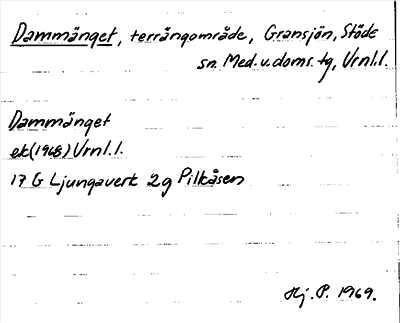 Dammänget, terrängområde, Gransjön, Stöde
sn. Med. v. domr. tg, Vrnl.l.
Dammänget
ek(1968) Vrnl.l.
17 G Ljungaverk 2g Pilkåsen
Hj. P. 1969.